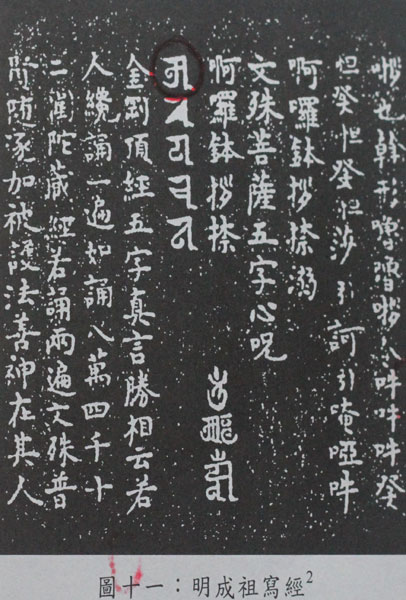 也幹形嚕吽吽吽癹
怛癹怛癹怛莎引訶引唵啞吽
啊囉鉢拶捺溺
文殊菩薩五字心呪
啊囉鉢拶捺
金剛頂經五字真言勝相云若
人纔誦一遍如誦八萬四千十
二圍陀藏經若誦兩遍文殊普
隨逐加被護法善神在其人
圖十一：明成祖寫經2